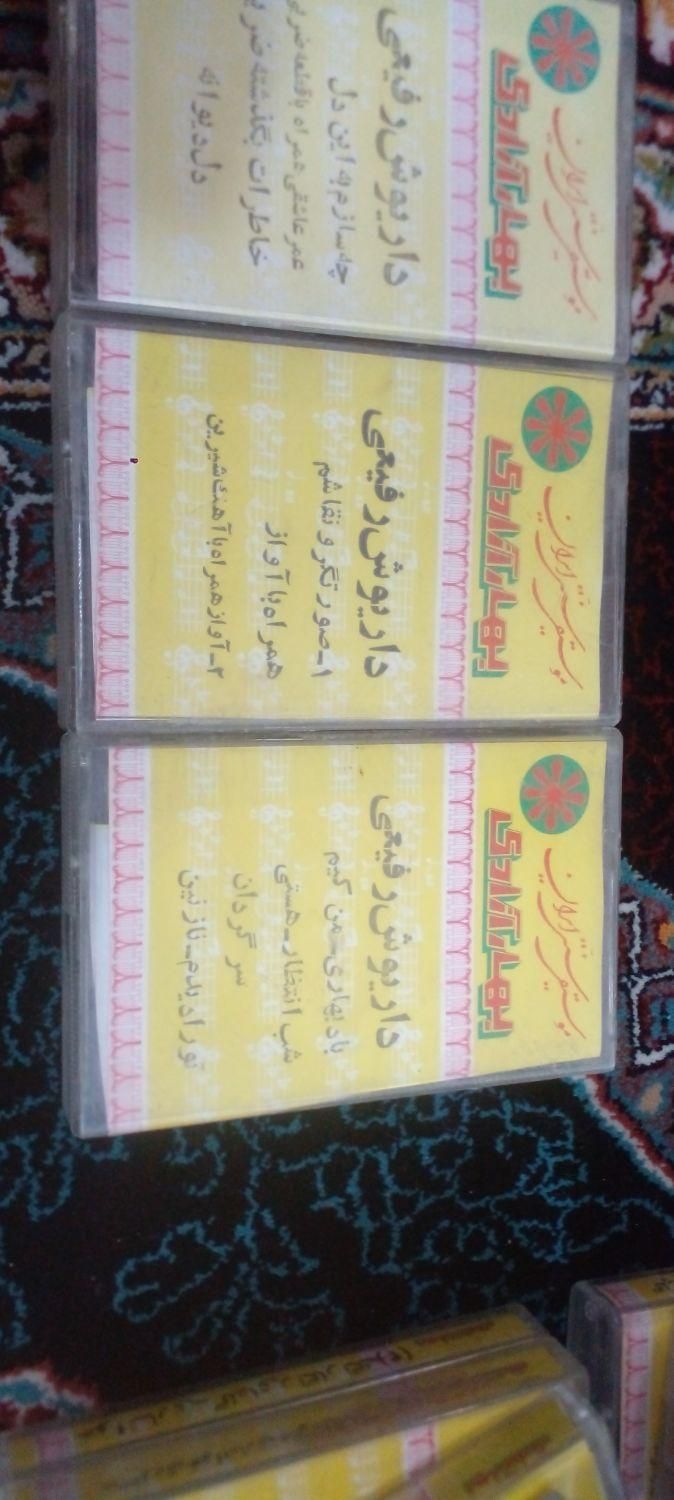 موسیقی سنتی ایران
بهار آزادی
داریوش رفیعی
چه سازم به این دل
عمر عاشقی همراه با قطعه ضربی
خاطرات بگذشته ضربی
دل دیوانه
موسیقی سنتی ایران
بهار آزادی
داریوش رفیعی
۱_صورتگر و نقاشم
همراه با آواز
۲_آواز همراه با آهنگ شیرین
موسیقی سنتی ایران
بهار آزادی
داریوش رفیعی
باد بهاری_من کیم
شب انتظار_هستی
سرگردان
تو را دیدم_نازنین